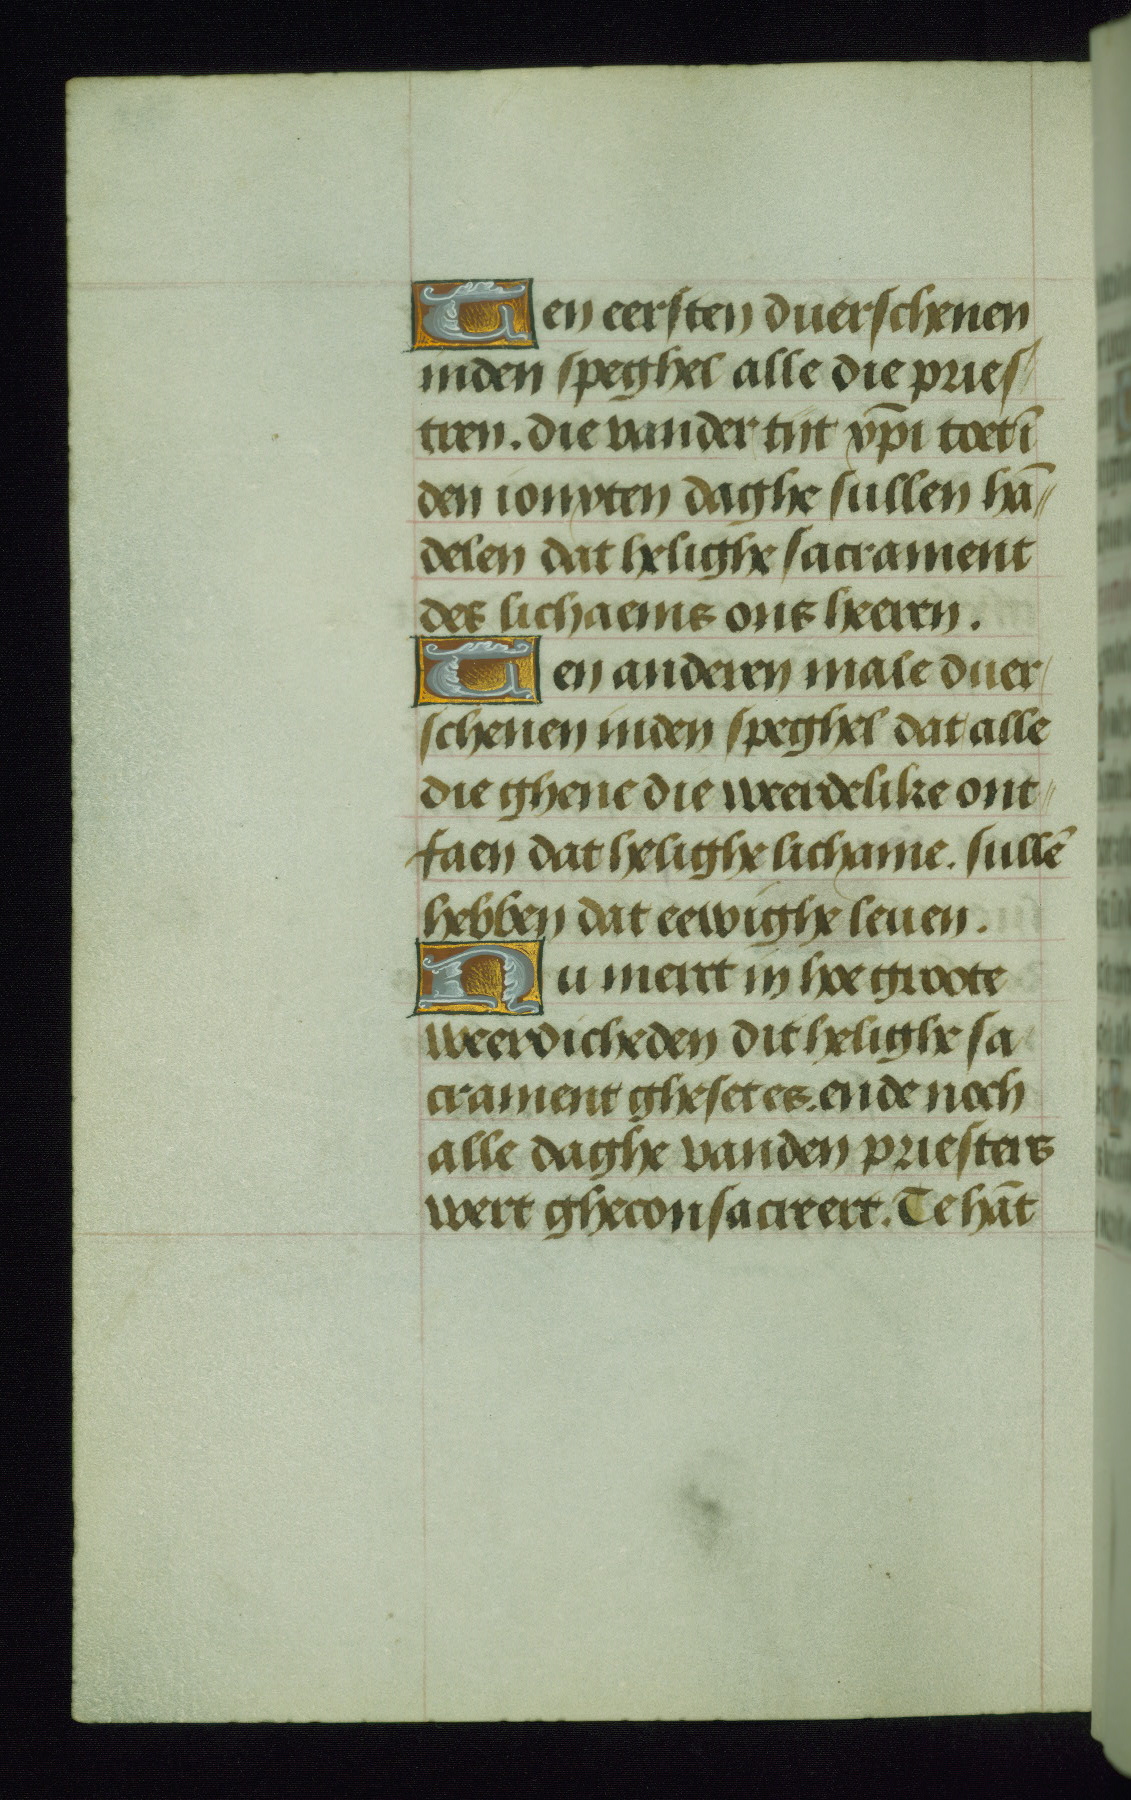 Ten eersten duerschenen
inden speghel alle die pries/
tren. die vander tijt xp̄i toetī
den ionxten daghe sullen hā//
delen dat helighe sacrament
des lichaems ons heeren.
Ten anderen male duer/
schenen inden speghel dat alle
die ghene die weerdelike ont//
faen dat helighe lichame. sullē
hebben dat eewighe leuen.
Nu merct in hoe groote
weerdicheden dit helighe sa
crament gheset es. ende noch
alle daghe vanden priesters
wert gheconsacreert. Te hāt